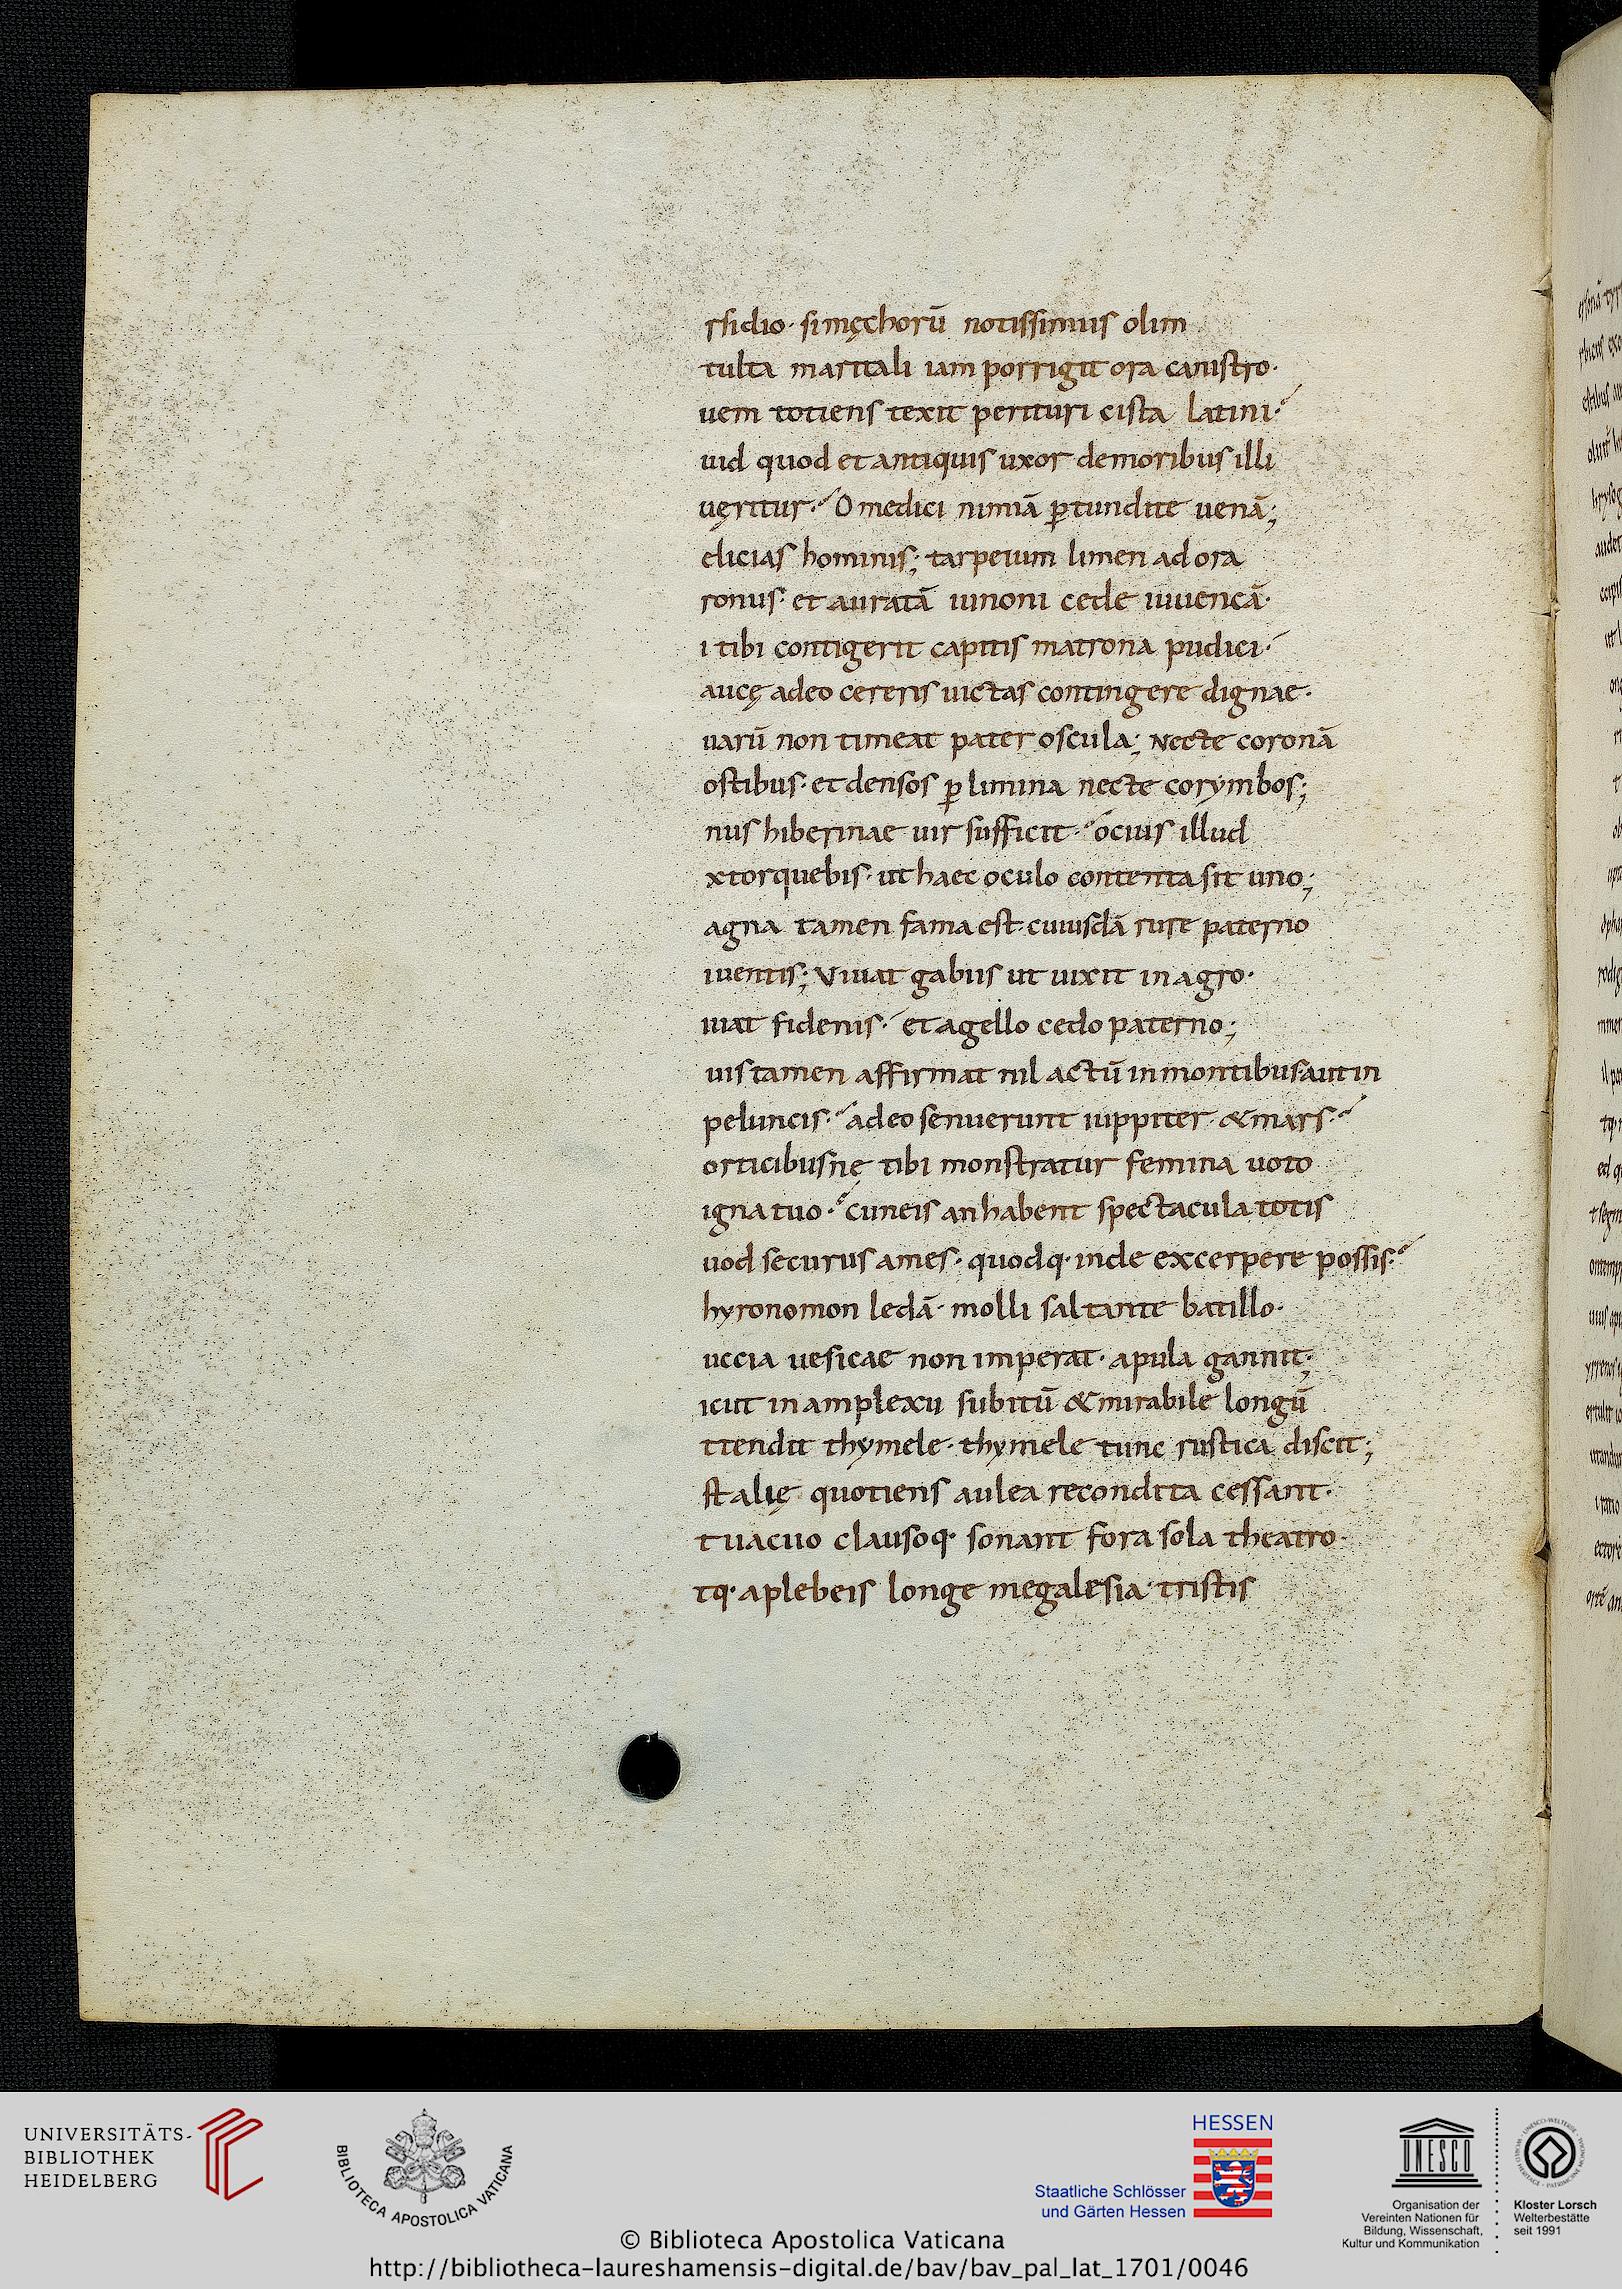 rsidio· simęchorū notissimus olim
tulta maritali iam porrigit ora canistro·
uem totiens texit perituri cista latini·
uid quod et antiquis uxor demoribus illi
uęritur· O medici nimiā ꝑtundite uenā;
elicias hominis; tarpeium limen adora
ronus· et auratā iunoni cede iuuencā·
i tibi contigerit capitis matrona pudici·
aucę adeo cereris uictas contingere dignae·
uarū non timeat pater oscula; Necte coronā
ostibus· et densos ꝑ limina necte corymbos;
nus hiberinae uir sufficit· ocius illud
xtorquebis· ut haec oculo contenta sit uno;
agna tamen fama est· cuiusdā rure paterno
iuentis; Viuat gabiis ut uixit in agro·
iuat fidenis· et agello cedo paterno;
uis tamen affirmat nil actū inmontibus aut in
peluncis· adeo senuerunt iuppiter· & mars·
orticibusnę tibi monstratur femina uoto
igna tuo· cuneis an habent spectacula totis
uod securus ames· quodq· inde excerpere possis·
hyronomon ledā· molli saltante batillo·
uccia uesicae non imperat· apula gannit;
icut in amplexu subitū & mirabile longū
ttendit thymele· thymele tunc rustica discit;
st alię quotiens aulea recondita cessant·
t uacuo clausoq· sonant fora sola theatro·
tq· aplebeis longe megalesia· tristis
UNIVERSITÄTS-
BIBLIOTHEK
HEIDELBERG
BIBLIOTECA APOSTOLICA VATICANA
HESSEN
Staatliche Schlösser
und Gärten Hessen
UNESCO
Organisation der
Vereinten Nationen für
Bildung, Wissenschaft,
Kultur und Kommunikation
Kloster Lorsch
Welterbestätte
seit 1991
© Biblioteca Apostolica Vaticana
http://bibliotheca-laureshamensis-digital.de/bav/bav_pal_lat_1701/0046